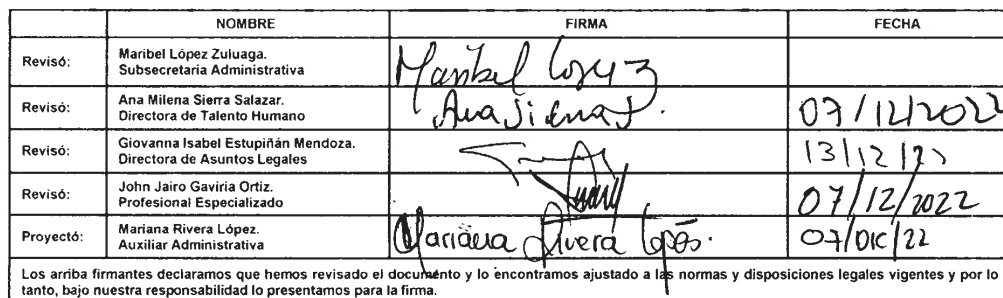 NOMBRE FIRMA FECHA
Revisó: Maribel López Zuluaga.
Subsecretaria Administrativa
Maribel López Z
Revisó: Ana Milena Sierra Salazar.
Directora de Talento Humano
Ana Sierra S. 07/12/2022
Revisó: Giovanna Isabel Estupiñán Mendoza.
Directora de Asuntos Legales
13/12/
Revisó: John Jairo Gaviria Ortiz.
Profesional Especializado
07/12/2022
Proyectó: Mariana Rivera López.
Auxiliar Administrativa
Mariana Rivera López. 07/DIC/22
Los arriba firmantes declaramos que hemos revisado el documento y lo encontramos ajustado a las normas y disposiciones legales vigentes y por lo
tanto, bajo nuestra responsabilidad lo presentamos para la firma.